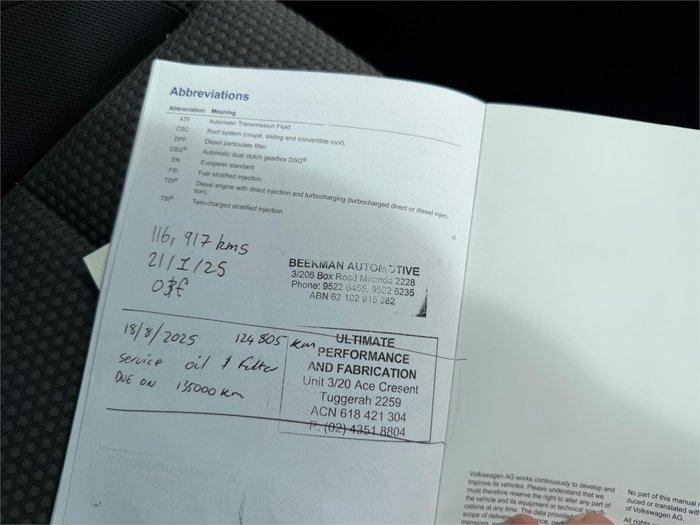 Abbreviations
Abbreviation Meaning
ATF Automatic Transmission Fluid.
CSC Roof system (coupé, sliding and convertible roof).
DPF Diesel particulate filter.
DSG® Automatic dual clutch gearbox DSG®
EN European standard.
FSI Fuel stratified injection.
TDI® Diesel engine with direct injection and turbocharging (turbocharged direct or diesel injec-
tion)
TSI® Twin-charged stratified injection.
116,917 kms
21/1/25
BEEKMAN AUTOMOTIVE
3/206 Box Road Miranda 2228
Phone: 9522 6455, 9522 6235
ABN 62 102 915 382
18/8/2025 124 805 km
service oil & filter
DUE ON 135000 km
ULTIMATE
PERFORMANCE
AND FABRICATION
Unit 3/20 Ace Cresent
Tuggerah 2259
ACN 618 421 304
P. (02) 4351 8804
Volkswagen AG works continuously to develop and
improve its vehicles. Please understand that we
must therefore reserve the right to alter any part of
the vehicle and its equipment or technical
cations at any time. The data provided
scope of
No part of this manual
duced or translated
of Volkswagen AG.
All rights